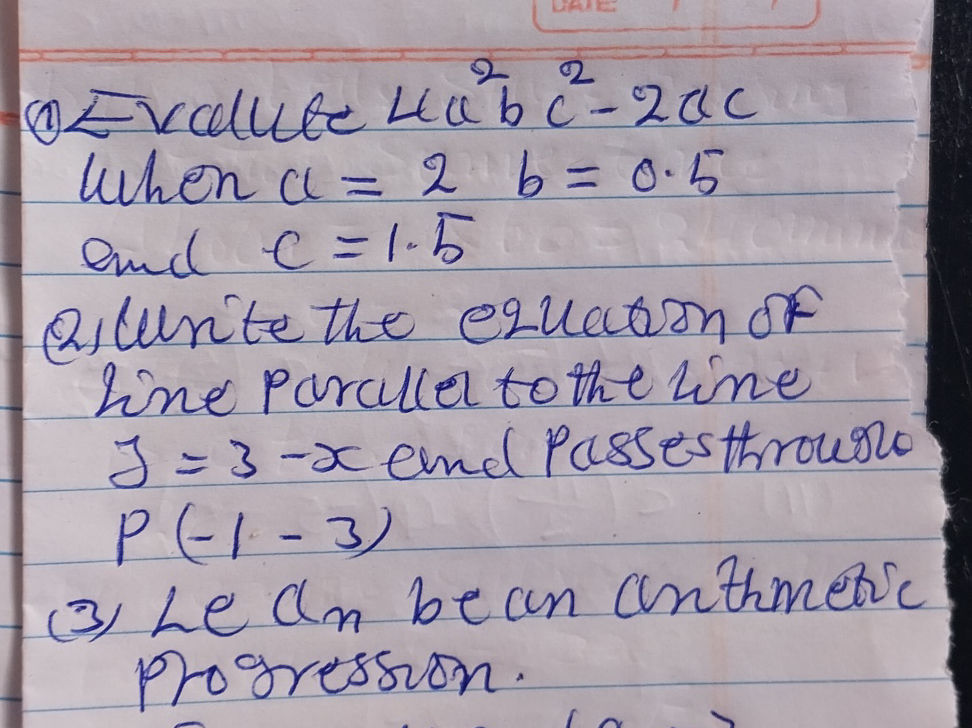 DATE:
(1) Evaluate 4a²bc²-2ac
When a = 2 b = 0.5
and c = 1.5
(2) Write the equation of
Line Parallel to the Line
y = 3 -x and Passes through
P (-1 - 3)
(3) Le an be an arithmetic
Progression.